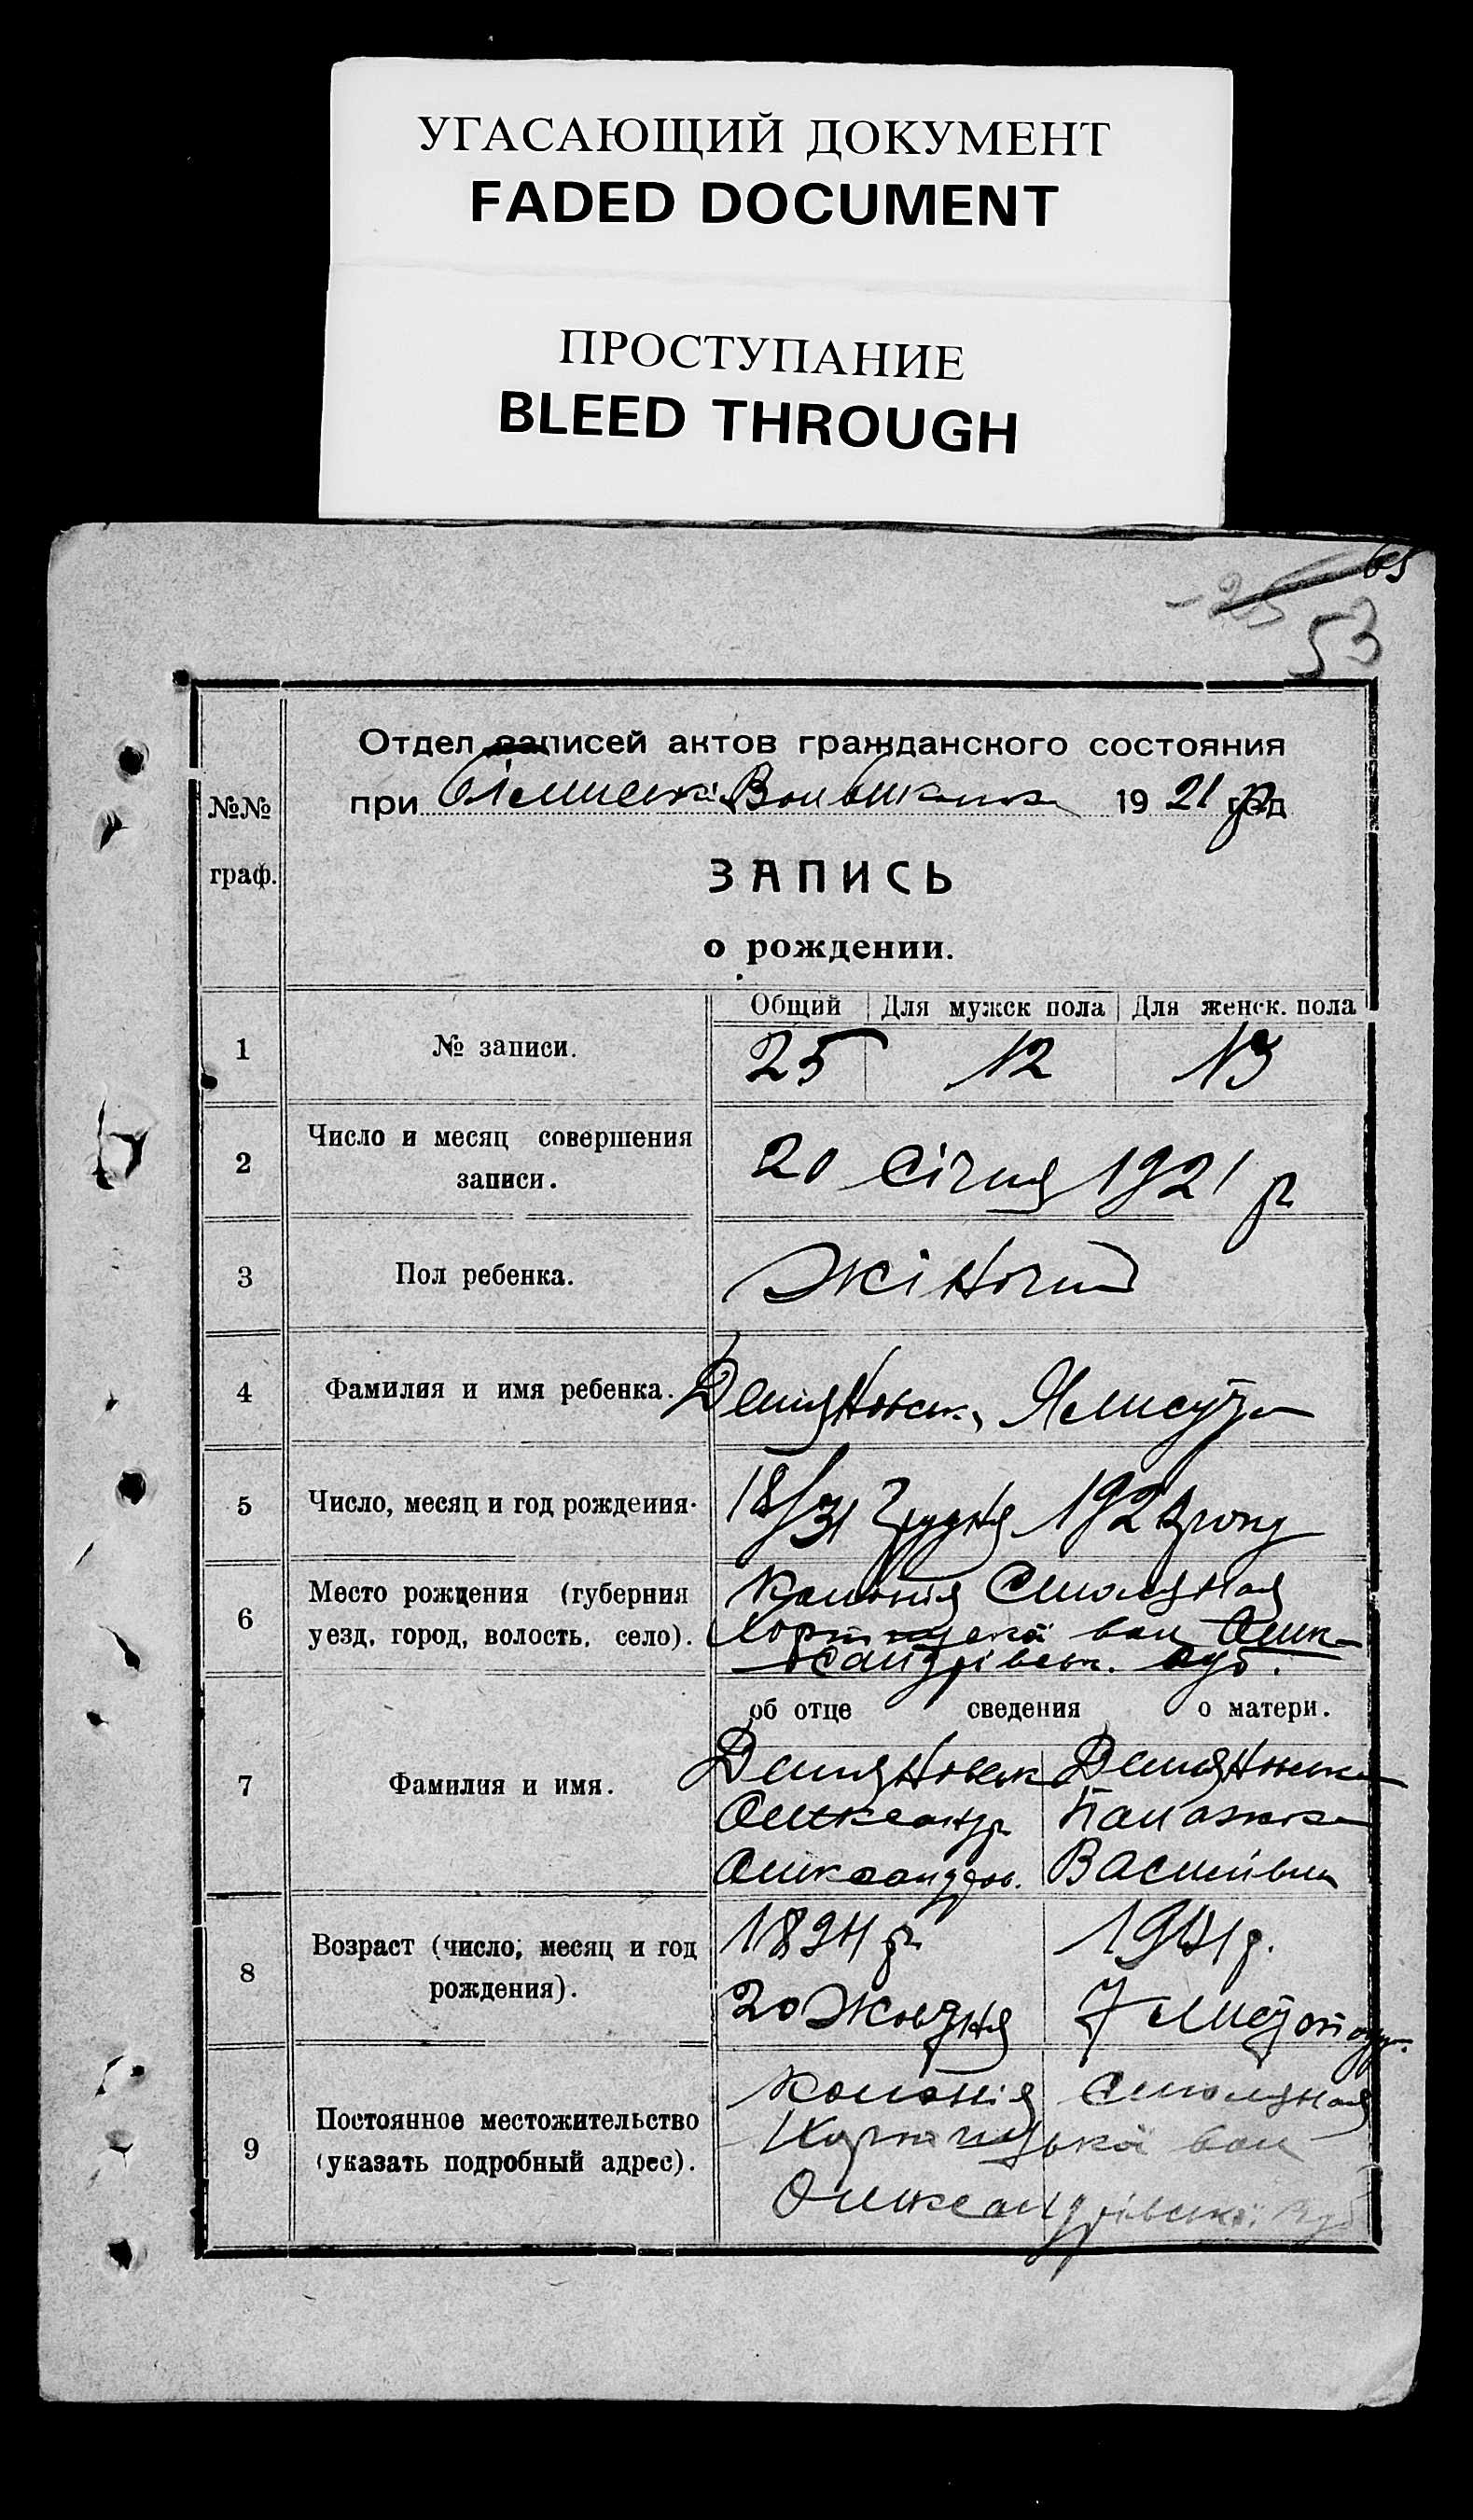 УГАСАЮЩИЙ ДОКУМЕНТ
FADED DOCUMENT
ПРОСТУПАНИЕ
BLEED THROUGH
65
25
53
№№
граф.
Отдел записей актов гражданского состояния
при 1921 год
ЗАПИСЬ
о рождении.
Общий Для мужск пола Для женск. пола
1 № записи. 25 12 13
2 Число и месяц совершения
записи.
20 Січня 1921 р
3 Пол ребенка. Жіночий
4 Фамилия и имя ребенка.
5 Число, месяц и год рождения. 18/31 Грудня року
6 Место рождения (губерния
уезд, город, волость, село).
Колонія Смоляная
Хортицької вол Олек-
сандрівськ. губ.
об отце сведения о матери.
7 Фамилия и имя.
Олександр
Олександров. Василівна
8 Возраст (число, месяц и год
рождения).
1894 р
20 Жовтня 7 Листопад
9 Постоянное местожительство
(указать подробный адрес).
Колонія Смоляная
Хортицької вол
Олександрівської губ